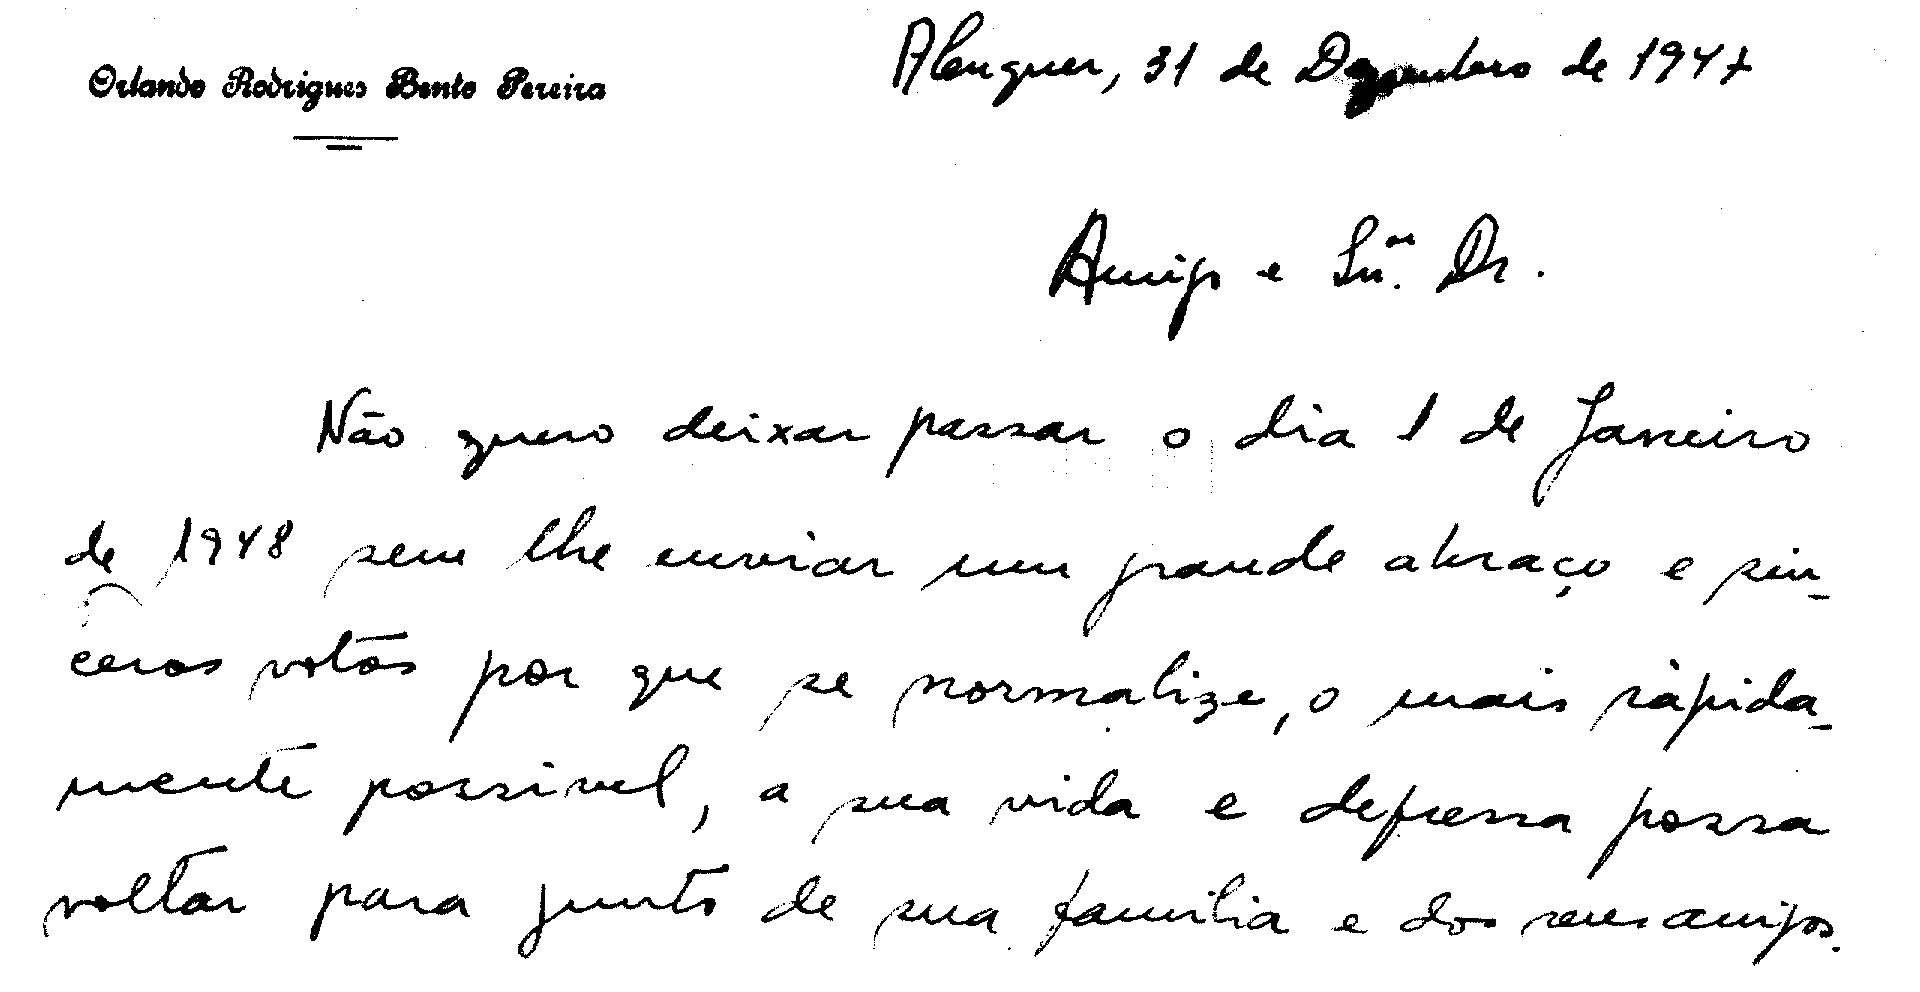 Orlando Rodrigues Bento Pereira
Alenquer, 31 de Dezembro de 1947
Amigo e Snr. Dr.
Não quero deixar passar o dia 1 de Janeiro
de 1948 sem lhe enviar um grande abraço e sin-
ceros votos por que se normalize, o mais ràpida-
mente possivel, a sua vida e depressa possa
voltar para junto de sua familia e dos seus amigos.